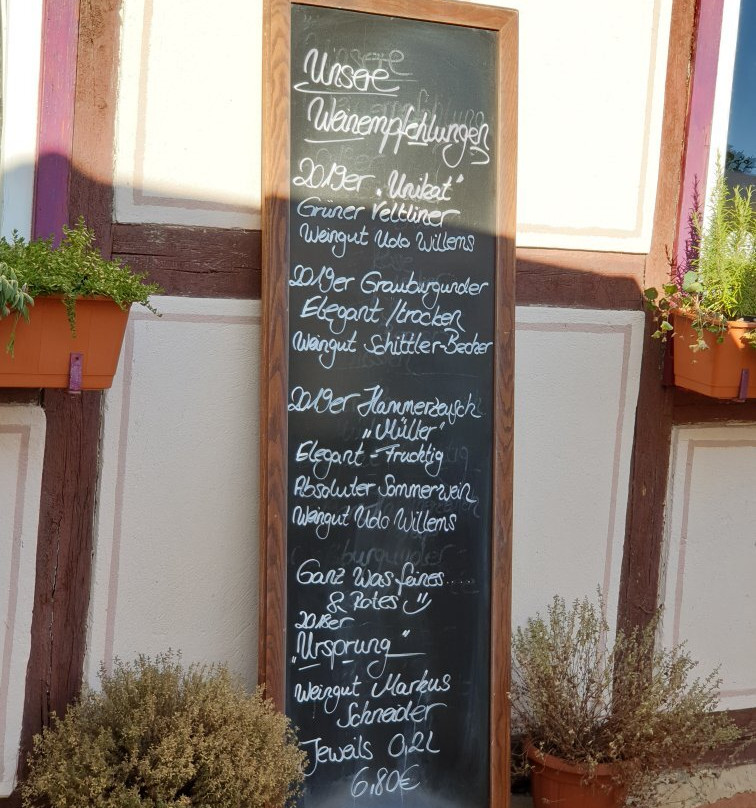 Unsere
Weinempfehlungen
2019er „Unikat“
Grüner Veltliner
Weingut Udo Willems
2019er Grauburgunder
Elegant / trocken
Weingut Schittler-Becker
2019er Hammerzeusch
„Müller“
Elegant - Fruchtig
Absoluter Sommerwein
Weingut Udo Willems
Ganz Was feines.....
& Rotes
2018er
„Ursprung“
Weingut Markus
Schneider
Jeweils 0,2L
6,80€